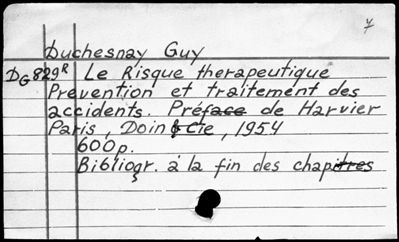 Duchesnay Guy
DG829R Le Risque therapeutique
Prevention et traitement des
accidents. Préface de Harvier
Paris, Doin & Cie, 1954
600p.
Bibliogr. à la fin des chapitres